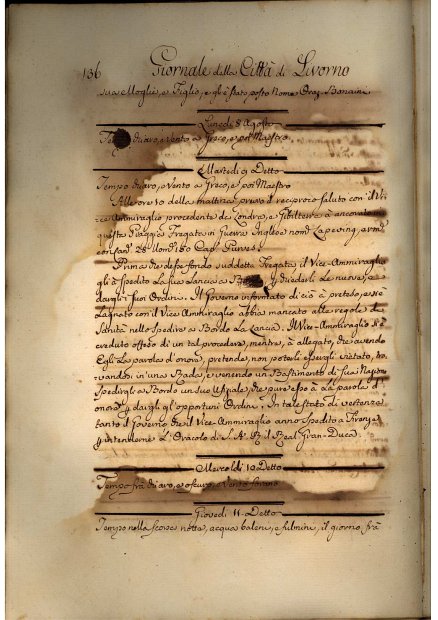 136 Giornale della Città di Livorno
sua Moglie, e Figlio, e gli è stato posto Nome Oraz. Bonaini
Lunedi 8 Agosto
Tempo chiaro, e Vento a Greco, e poi Maestro
Martedi 9 Detto
Tempo chiaro, e Vento a Greco, e poi Maestro
Alle ore 10 della mattina privo il reciproco saluto con il
Ammiraglio procedente da Londra, e Gibilterra à ancorato in
questa Piaggia Fregata in Guerra Inglese nom.
con Can. 28 Uom. 180 Cap.
Prima che desse fondo suddetta Fregata il Vice-Ammiraglio
gli à spedito la sua Lancia a chiederli le nuove, e
dargli i suoi Ordini. Il Governo informato di ciò à preteso, e si è
Lagnato con il Vice-Ammiraglio abbia mancato alle regole di
Sanità nello spedire a Bordo la Lancia. Il Vice-Ammiraglio si è
creduto offeso di un tal procedere, mentre, à allegato, che avendo
Egli la parola di onore, pretende, non poterli essergli vietato,
in una Rada, e venendo un Bastimento di Sua Nazione
Spedirgli a Bordo un suo Uffiziale, che pure esso à la parola d'
onore p. dargli gli opportuni Ordini. In tale stato di vertenza
tanto il Governo che il Vice-Ammiraglio anno Spedito a Firenze
p. intenderne l'Oracolo di S. A. R. il Real Gran-Duca.
Mercoldi 10 Detto
Tempo frà chiaro, e oscuro, e Vento forano
Giovedi 11 Detto
Tempo nella scorsa notte, acqua baleni, e fulmini, il giorno frà